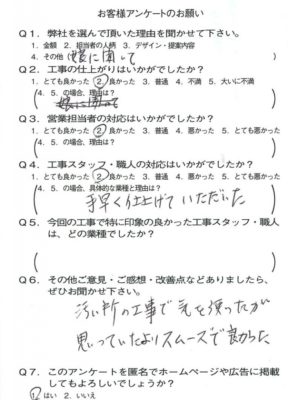 お客様アンケートのお願い
Q1．弊社を選んで頂いた理由を聞かせて下さい。
1．金額 2．担当者の人柄 3．デザイン・提案内容
4．その他( に関して )
Q2．工事の仕上がりはいかがでしたか？
1．とても良かった ②良かった 3．普通 4．不満 5．大いに不満
(4．5．の場合、理由は？
)
Q3．営業担当者の対応はいかがでしたか？
1．とても良かった ②良かった 3．普通 4．悪かった 5．とても悪かった
(4．5．の場合、理由は？
)
Q4．工事スタッフ・職人の対応はいかがでしたか？
1．とても良かった ②良かった 3．普通 4．悪かった 5．とても悪かった
(4．5．の場合、具体的な業種と理由は？
手早く仕上げていただいた
)
Q5．今回の工事で特に印象の良かった工事スタッフ・職人
は、どの業種でしたか？
( )
Q6．その他ご意見・ご感想・改善点などありましたら、
ぜひお聞かせ下さい。
汚い所の工事で気を使ったが
思っていたよりスムーズで良かった
Q7．このアンケートを匿名でホームページや広告に掲載
してもよろしいでしょうか？
①はい 2．いいえ